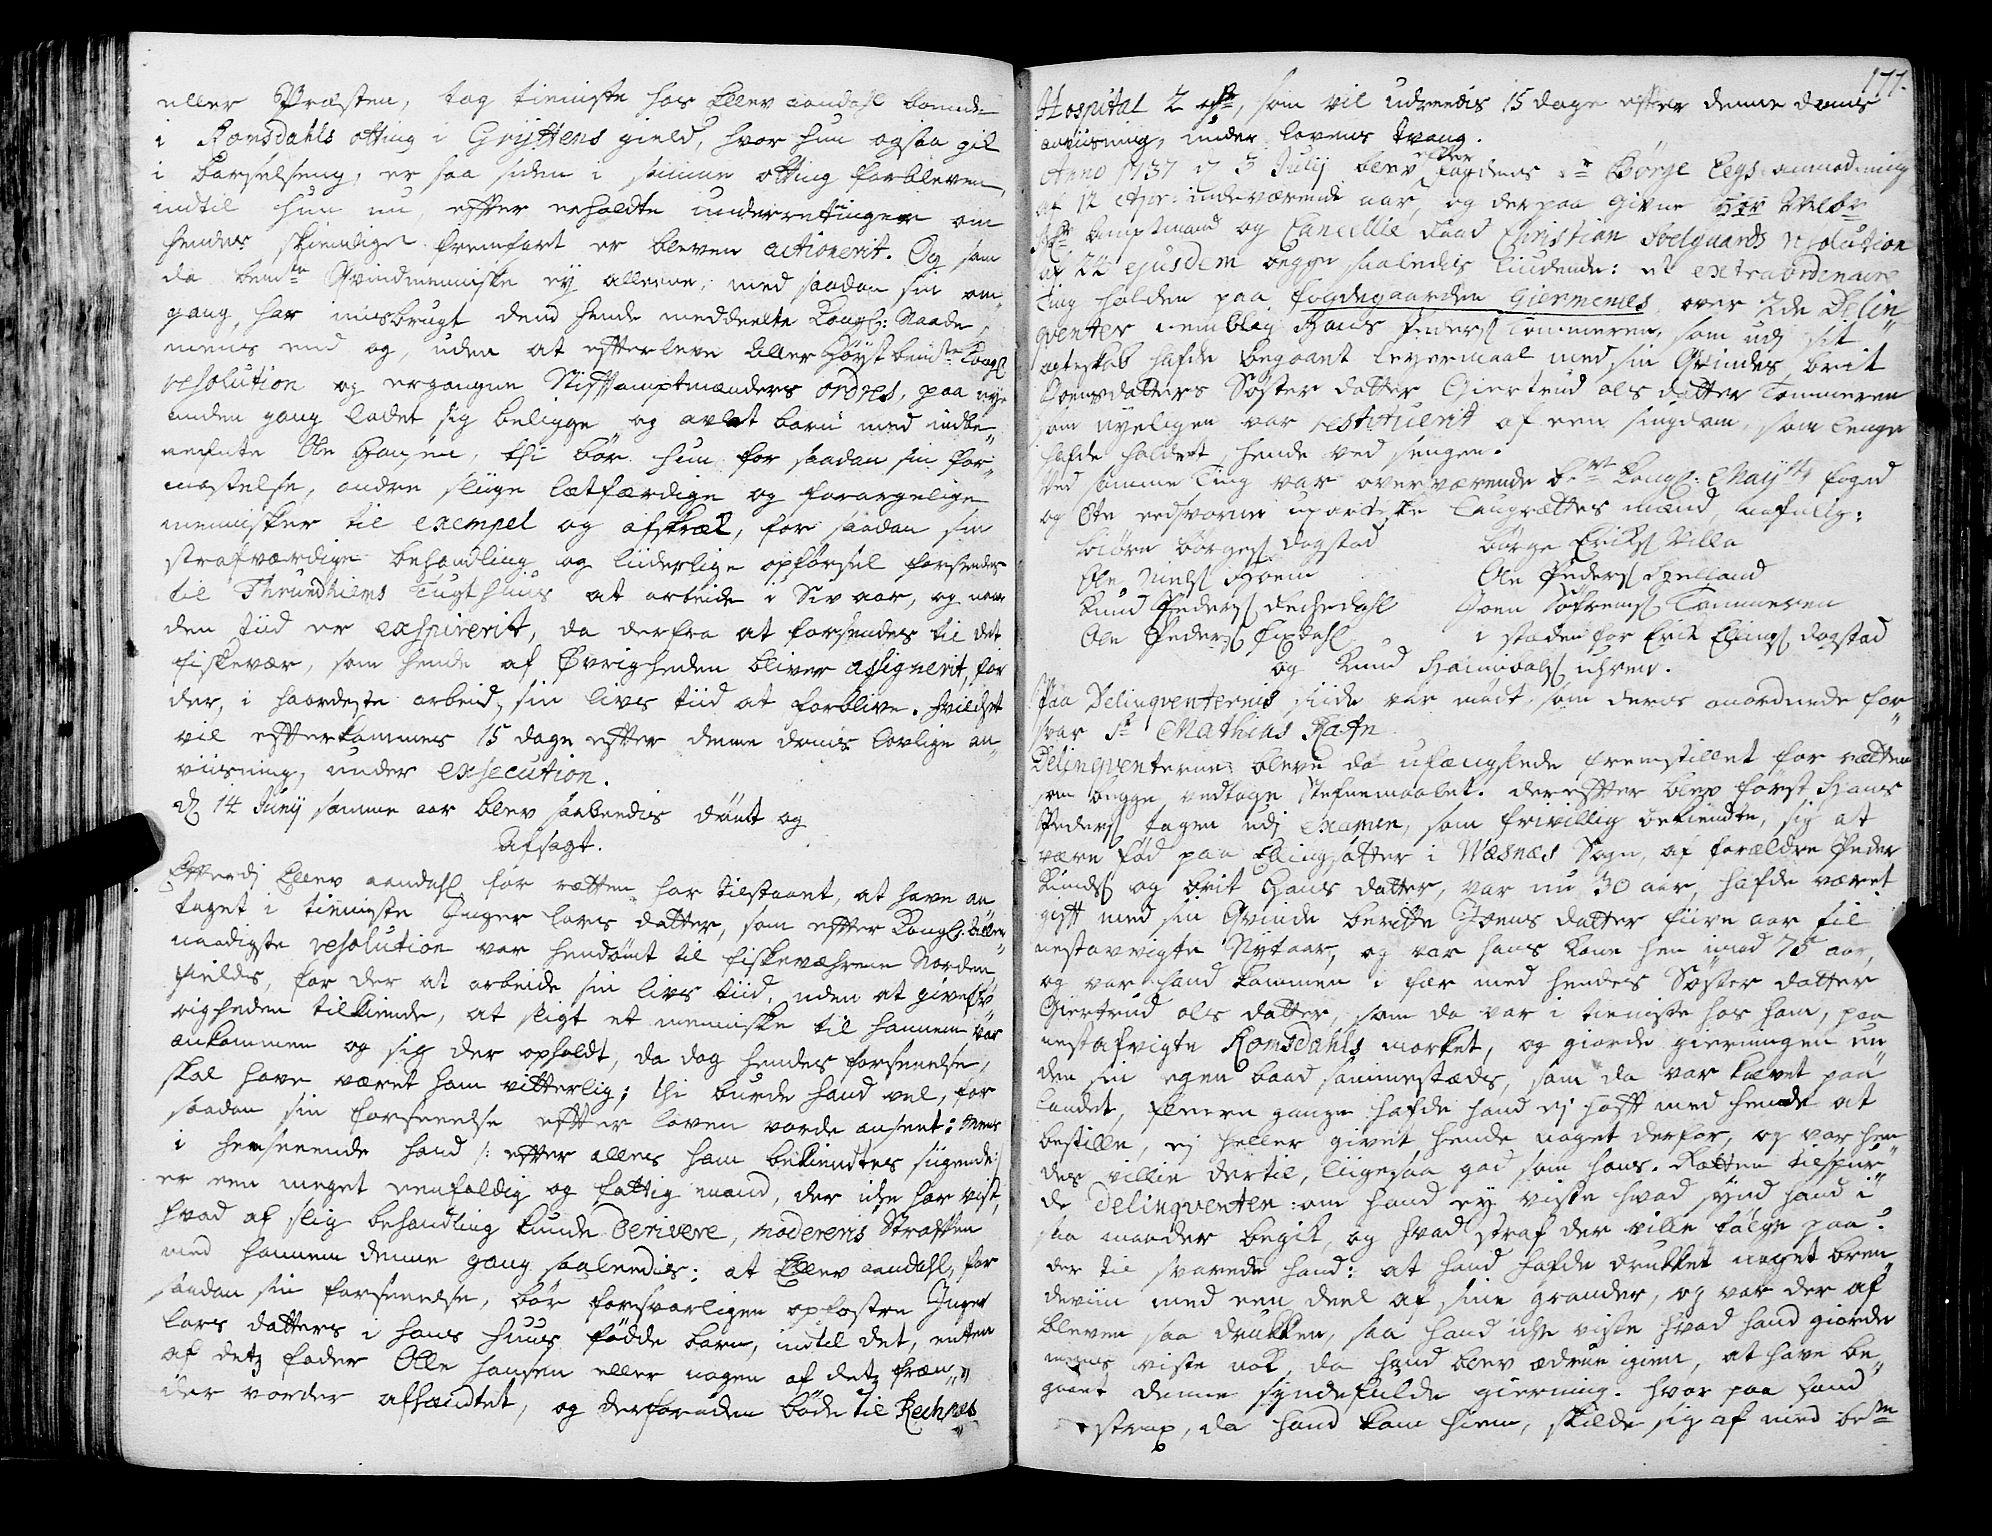 eller Præsten, tog tieniste hos Ellev aandahl boende
i Romsdahls otting i Gryttens gield, hvor hun ogsaa gik
i barselseng, er saa siden i samme otting forbleven,
indtil hun nu, effter erholdte underretninger om
hendes skiemlige fremfart er bleven actionerit. Og som
da bemte Qvindmenniske ey alleene, med saadan sin om„
gang, har misbrugt dend hende meddeelte Kongl: Naade,
mens end og, uden at effterleve Aller Høyst bemte Kongl
resolution og ergangne Stifftamptmænders ordres, paa nye
anden gang ladet sig beligge og avlet barn med indbe„
nefnte Ole Hansen, thi bør hun for saadan sin for„
mastelse, andre sliige lætfærdige og forargelige
mennisker til exempel og afskræk, for saadan sin
strafværdige behandling og liiderlige opførsel forsendes
til Thrundhiems Tugthuus at arbeide i Siv aar, og naar
den tiid er exspirerit, da derfra at forsendes til det
fiskevær, som hende af Øvrigheden bliver assignerit, for
der, i haardeste arbeid, sin livs tiid at forblive. hvildset
vil effterkommes 15 dage effter denne doms lovlige an„
viisning, under exsecution.
d 14 Junij samme aar blev saaleedis dømt og
Afsagt.
Efftersom Ellev aandahl for rætten har tilstaaet, at have an„
taget i tieniste Inger lars datter, som effter Kongl: Aller„
naadigste resolution var hendømt til fiskeværene Norden„
fields, for der at arbeide sin livs tiid, uden at give Øv„
righeden tilkiende, at sligt et menniske til hannem var
ankommen og sig der opholdt, da dog hendes forseelse,
skal have været ham vitterlig; thi burde hand vel, for
saadan sin forseelse effter loven vorde anseet: mens
i henseende hand /: effter alles ham bekiendtes siigende:/
er een meget eenfoldig og fattig mand, der icke har vist,
hvad af slig behandling kunde Derivere, modereris Straffen
med hannem denne gang saaleedis: at Ellev aandahl, for
saadan sin forseelse, bør forsvarligen opfostre Inger
lars datters i hans huus fødde barn, indtil det, enten
af detz fader Olle hansen eller nogen af detz fræn„
der vorder afhændtet, og derforuden bøde til Rechnes
177.
Hospital 2 rdr, som vil udreedis 15 dage effter denne doms
anviisning, under lovens tvang.
Anno 1737 d 3 Julij blev effter fogdens Sr Børge Eegs anmodning
af 12 Apr: indeværende aar, og derpaa givne Hør Welbr
Hr Amptmand og Cancellie Raad Christian Svelgaards resolution
af 22 ejusdem begge saaledis liudende: et extraordenaire
Ting holden paa fogdegaarden Giermenes over 2de Delin„
qventer nemblig Hans Peders Tommeren, som udj sit
egteskab hafde begaaet leyermaal med sin Qvindes brit
Joensdatters Søster datter Giertrud ols datter Tommeren
som nyeligen var restituerit af een siugdom, som lenge
hafde holdet hende ved sengen.
Ved samme Ting var overværende bemt Kongl: Mayts foged
og Otte eedsvorne upartiske laugrættes mænd, nafnlig:
Biørn børges dogstad børge Eriks Villa
Ole Niels Hoem Ole Peders Helland
Knud Peders Rechedahl Joen Tommeren
Ole Peders fixdahl i steden for Erik Ellings dogstad
og Knud
Paa Delinqventernis siide var mødt, som deris anordnede for„
svar Sr Mathias Rafn
Delinqventerne bleve da ufængslede fremstillet for rætten
som begge vedtoge Stefnemaalet. dereffter blev først Hans
Peders tagen udj examen, som frivillig bekiendte, sig at
være fød paa Ellingsætter i Wæsnæs Sogn, af forældre Peder
Knuds og brit Hans datter, var nu 30 aar, hafde været
gifft med sin Qvinde beritte Joens datter fiire aar til
nestavvigte Nytaar, og var hans kone hen imod 75 aar,
og var hand kommen i fær med hendes Søster datter
Giertrud ols datter, som da var i tieniste hos ham, paa
nest afvigte Romsdahls market, og giorde gierningen un„
den sin egen baad sammestæds, som da var kaavet paa
landet, fleere gange hafde hand ej hafft med hende at
bestille, ej heller givet hende noget derfor, og var hen„
des villie dertil, liigesaa god som hans. Rætten tilspur„
de Delinqventen: om hand ey viste hvad synd hand i
saa maader begik, og hvad straf der ville følge paa?
der til svarede hand: at hand hafde drukket noget bren„
deviin med een deel af sine grander, og var der af
bleven saa drukken, saa hand icke viste hvad hand giorde
mens viste nok, da hand blev ædrue igien, at have be„
gaaet denne syndefulde gierning. hvor paa hand
strax, da hand kom hiem, skilde sig af med bemte